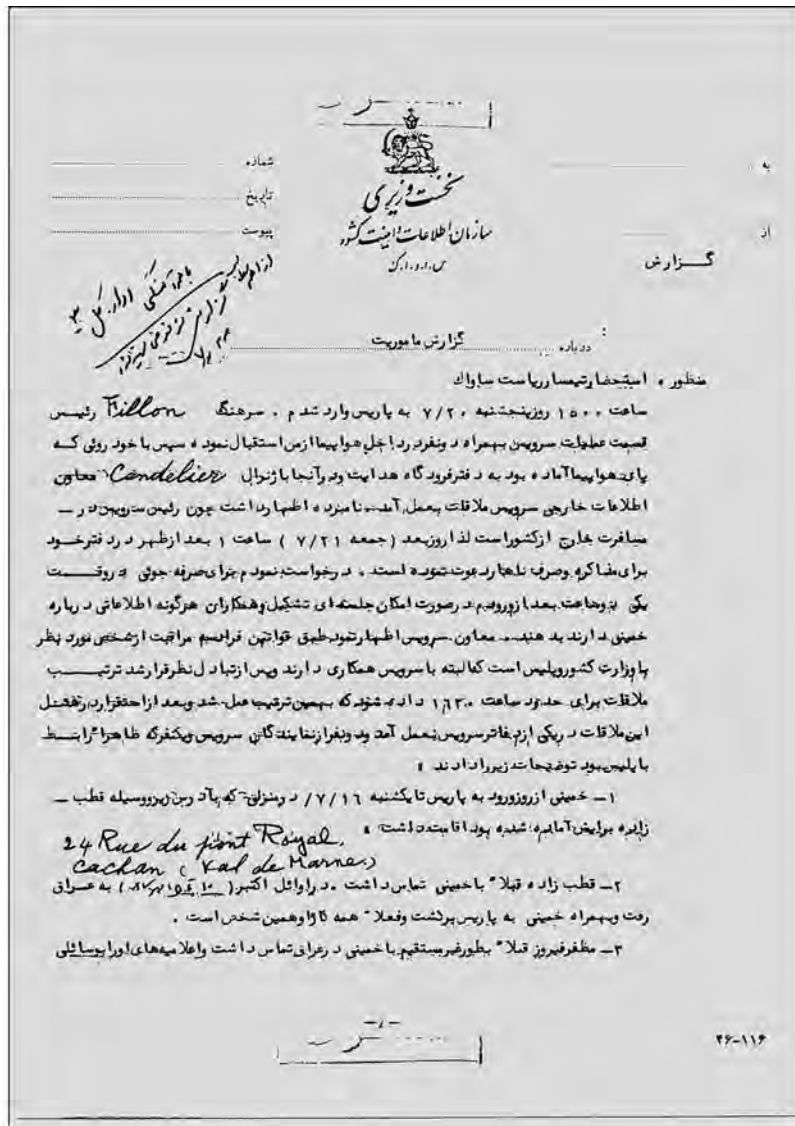 به
شماره
نخست وزیری
تاریخ
از
سازمان اطلاعات و امنیت کشور
پیوست
س.ا.و.ا.ک
گزارش
درباره : گزارش ماموریت
منظور ، استحضار تیمسار ریاست ساواک
ساعت ۱۵۰۰ روز پنجشنبه ۷/۲۰ به پاریس وارد شدم . سرهنگ Fillon رئیس
قسمت عملیات سرویس بهمراه دو نفر در داخل هواپیما از من استقبال نمود ه سپس با خود روئی که
پای هواپیما آماده بود به دفتر فرودگاه هدایت و در آنجا با ژنرال Candelier معاون
اطلاعات خارجی سرویس ملاقات بعمل آمد . نامبرده اظهار داشت چون رئیس سرویس در —
مسافرت خارج از کشور است لذا روز بعد ( جمعه ۷/۲۱ ) ساعت ۱ بعد از ظهر در دفتر خود
برای مذاکره و صرف ناهار دعوت نموده است . درخواست نمودم برای صرفه جوئی در وقت
یکی دو ساعت بعد از ورودم در صورت امکان جلسه ای تشکیل و همکاران هرگونه اطلاعاتی درباره
خمینی دارند بدهند . معاون سرویس اظهار نمود طبق قوانین فرانسه مراقبت از شخص مورد نظر
با وزارت کشور و پلیس است که البته با سرویس همکاری دارند و پس از تبادل نظر قرار شد ترتیب
ملاقات برای حدود ساعت ۱۶۳۰ داده شود که بهمین ترتیب عمل شد و بعد از استقرار در هتل
این ملاقات در یکی از دفاتر سرویس بعمل آمد و دو نفر از نمایندگان سرویس و یکنفر که ظاهرا رابط
با پلیس بود توضیحات زیر را دادند ،
۱ـ خمینی از روز ورود به پاریس تا یکشنبه ۷/۱۶/ در منزلی که بآدرس زیر وسیله قطب —
زاده برایش آماده شده بود اقامت داشت ،
24 Rue du pont Royal,
Cachan ( Val de Marne )
۲ـ قطب زاده قبلا" با خمینی تماس داشت . در اوائل اکتبر ( ) به عراق
رفت و بهمراه خمینی به پاریس برگشت و فعلا" همه کاره او همین شخص است .
۳ـ مظفر فیروز قبلا" بطور غیر مستقیم با خمینی در عراق تماس داشت و اعلامیه های او را بوسائلی
۲۶-۱۱۶